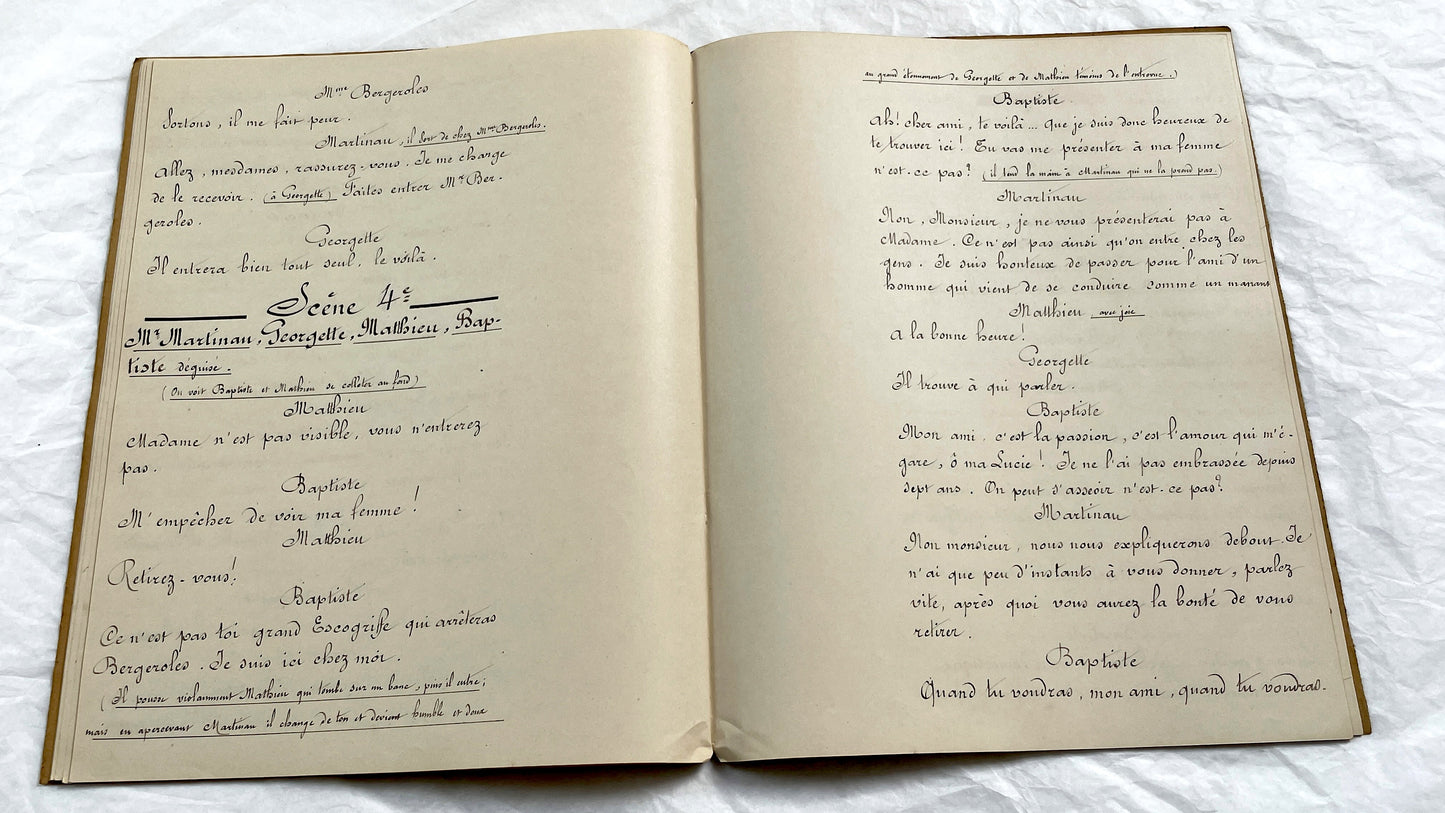 Mme Bergeroles
Sortons, il me fait peur.
Martinau, il sort de chez Mme Bergeroles.
Allez, mesdames, rassurez-vous. Je me charge
de le recevoir. (à Georgette) Faites entrer Mr Ber-
geroles.
Georgette
Il entrera bien tout seul, le voilà.
Scène 4e
Mr Martinau, Georgette, Matthieu, Bap-
tiste déguisé.
(On voit Baptiste et Mathieu se colleter au fond)
Matthieu
Madame n'est pas visible, vous n'entrerez
pas.
Baptiste
M'empêcher de voir ma femme !
Matthieu
Retirez-vous !
Baptiste
Ce n'est pas toi grand Escogriffe qui arrêteras
Bergeroles. Je suis ici chez moi.
(Il pousse violamment Mathieu qui tombe sur un banc, puis il entre ;
mais en apercevant Martinau il change de ton et devient humble et doux
au grand étonnement de Georgette et de Mathieu témoins de l'entrevue.)
Baptiste.
Ah! cher ami, te voilà... que je suis donc heureux de
te trouver ici ! Tu vas me présenter à ma femme
n'est-ce pas? (il tend la main à Martinau qui ne la prend pas.)
Martinau
Non, Monsieur, je ne vous présenterai pas à
Madame. Ce n'est pas ainsi qu'on entre chez les
gens. Je suis honteux de passer pour l'ami d'un
homme qui vient de se conduire comme un manant
Matthieu, avec joie
A la bonne heure !
Georgette
Il trouve à qui parler.
Baptiste
Mon ami, c'est la passion, c'est l'amour qui m'é-
gare, ô ma Lucie ! Je ne l'ai pas embrassée depuis
sept ans. On peut s'asseoir n'est-ce pas?
Martinau
Non monsieur, nous nous expliquerons debout. Je
n'ai que peu d'instants à vous donner, parlez
vite, après quoi vous aurez la bonté de vous
retirer.
Baptiste
Quand tu voudras, mon ami, quand tu voudras.